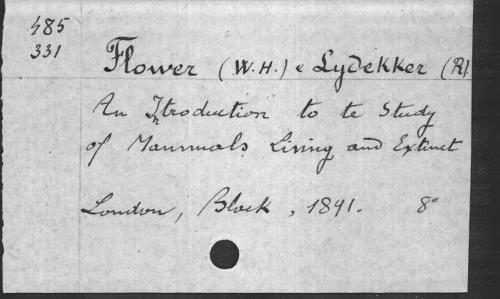 485
331
Flower (W.H.) e Lydekker (R).
An Introduction to te Study
of Mammals Living and Extinct
London, Black, 1891. 8°